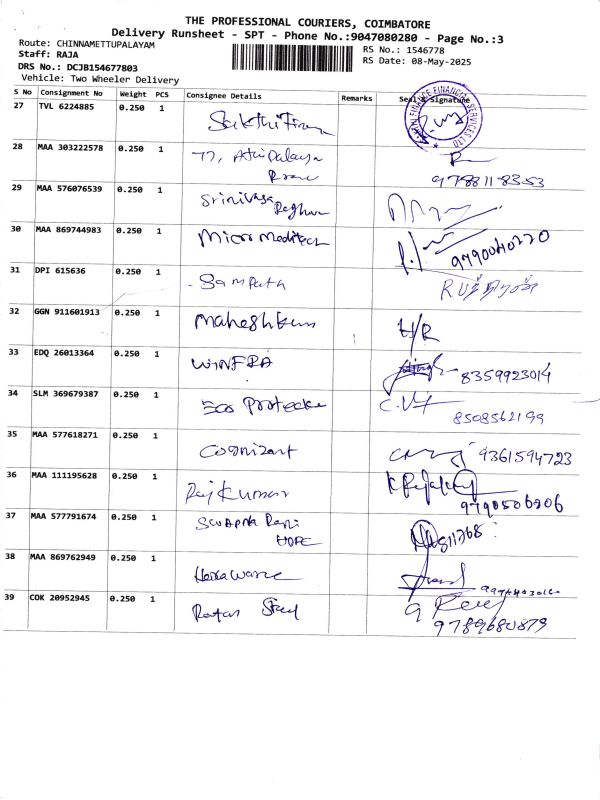 THE PROFESSIONAL COURIERS, COIMBATORE
Delivery Runsheet - SPT - Phone No.:9047080280 - Page No.:3
Route: CHINNAMETTUPALAYAM
RS No.: 1546778
Staff: RAJA
RS Date: 08-May-2025
DRS No.: DCJB154677803
Vehicle: Two Wheeler Delivery
S No Consignment No Weight PCS Consignee Details Remarks Seal & Signature
27 TVL 6224885 0.250 1 Sakthi Finan
28 MAA 303222578 0.250 1 77,
9788118353
29 MAA 576076539 0.250 1 Srinivasa
Raghu
30 MAA 869744983 0.250 1 Micro Meditech
9790040270
31 DPI 615636 0.250 1 Sampath
32 GGN 911601913 0.250 1 Maheshkum H/R
33 EDQ 26013364 0.250 1 8359923014
34 SLM 369679387 0.250 1 Protecke
8508562199
35 MAA 577618271 0.250 1 Cognizant 9361594723
36 MAA 111195628 0.250 1 Raj Kumar
9790506206
37 MAA 577791674 0.250 1 Swapna
38 MAA 869762949 0.250 1
39 COK 20952945 0.250 1 Ratan Steel
9789680879